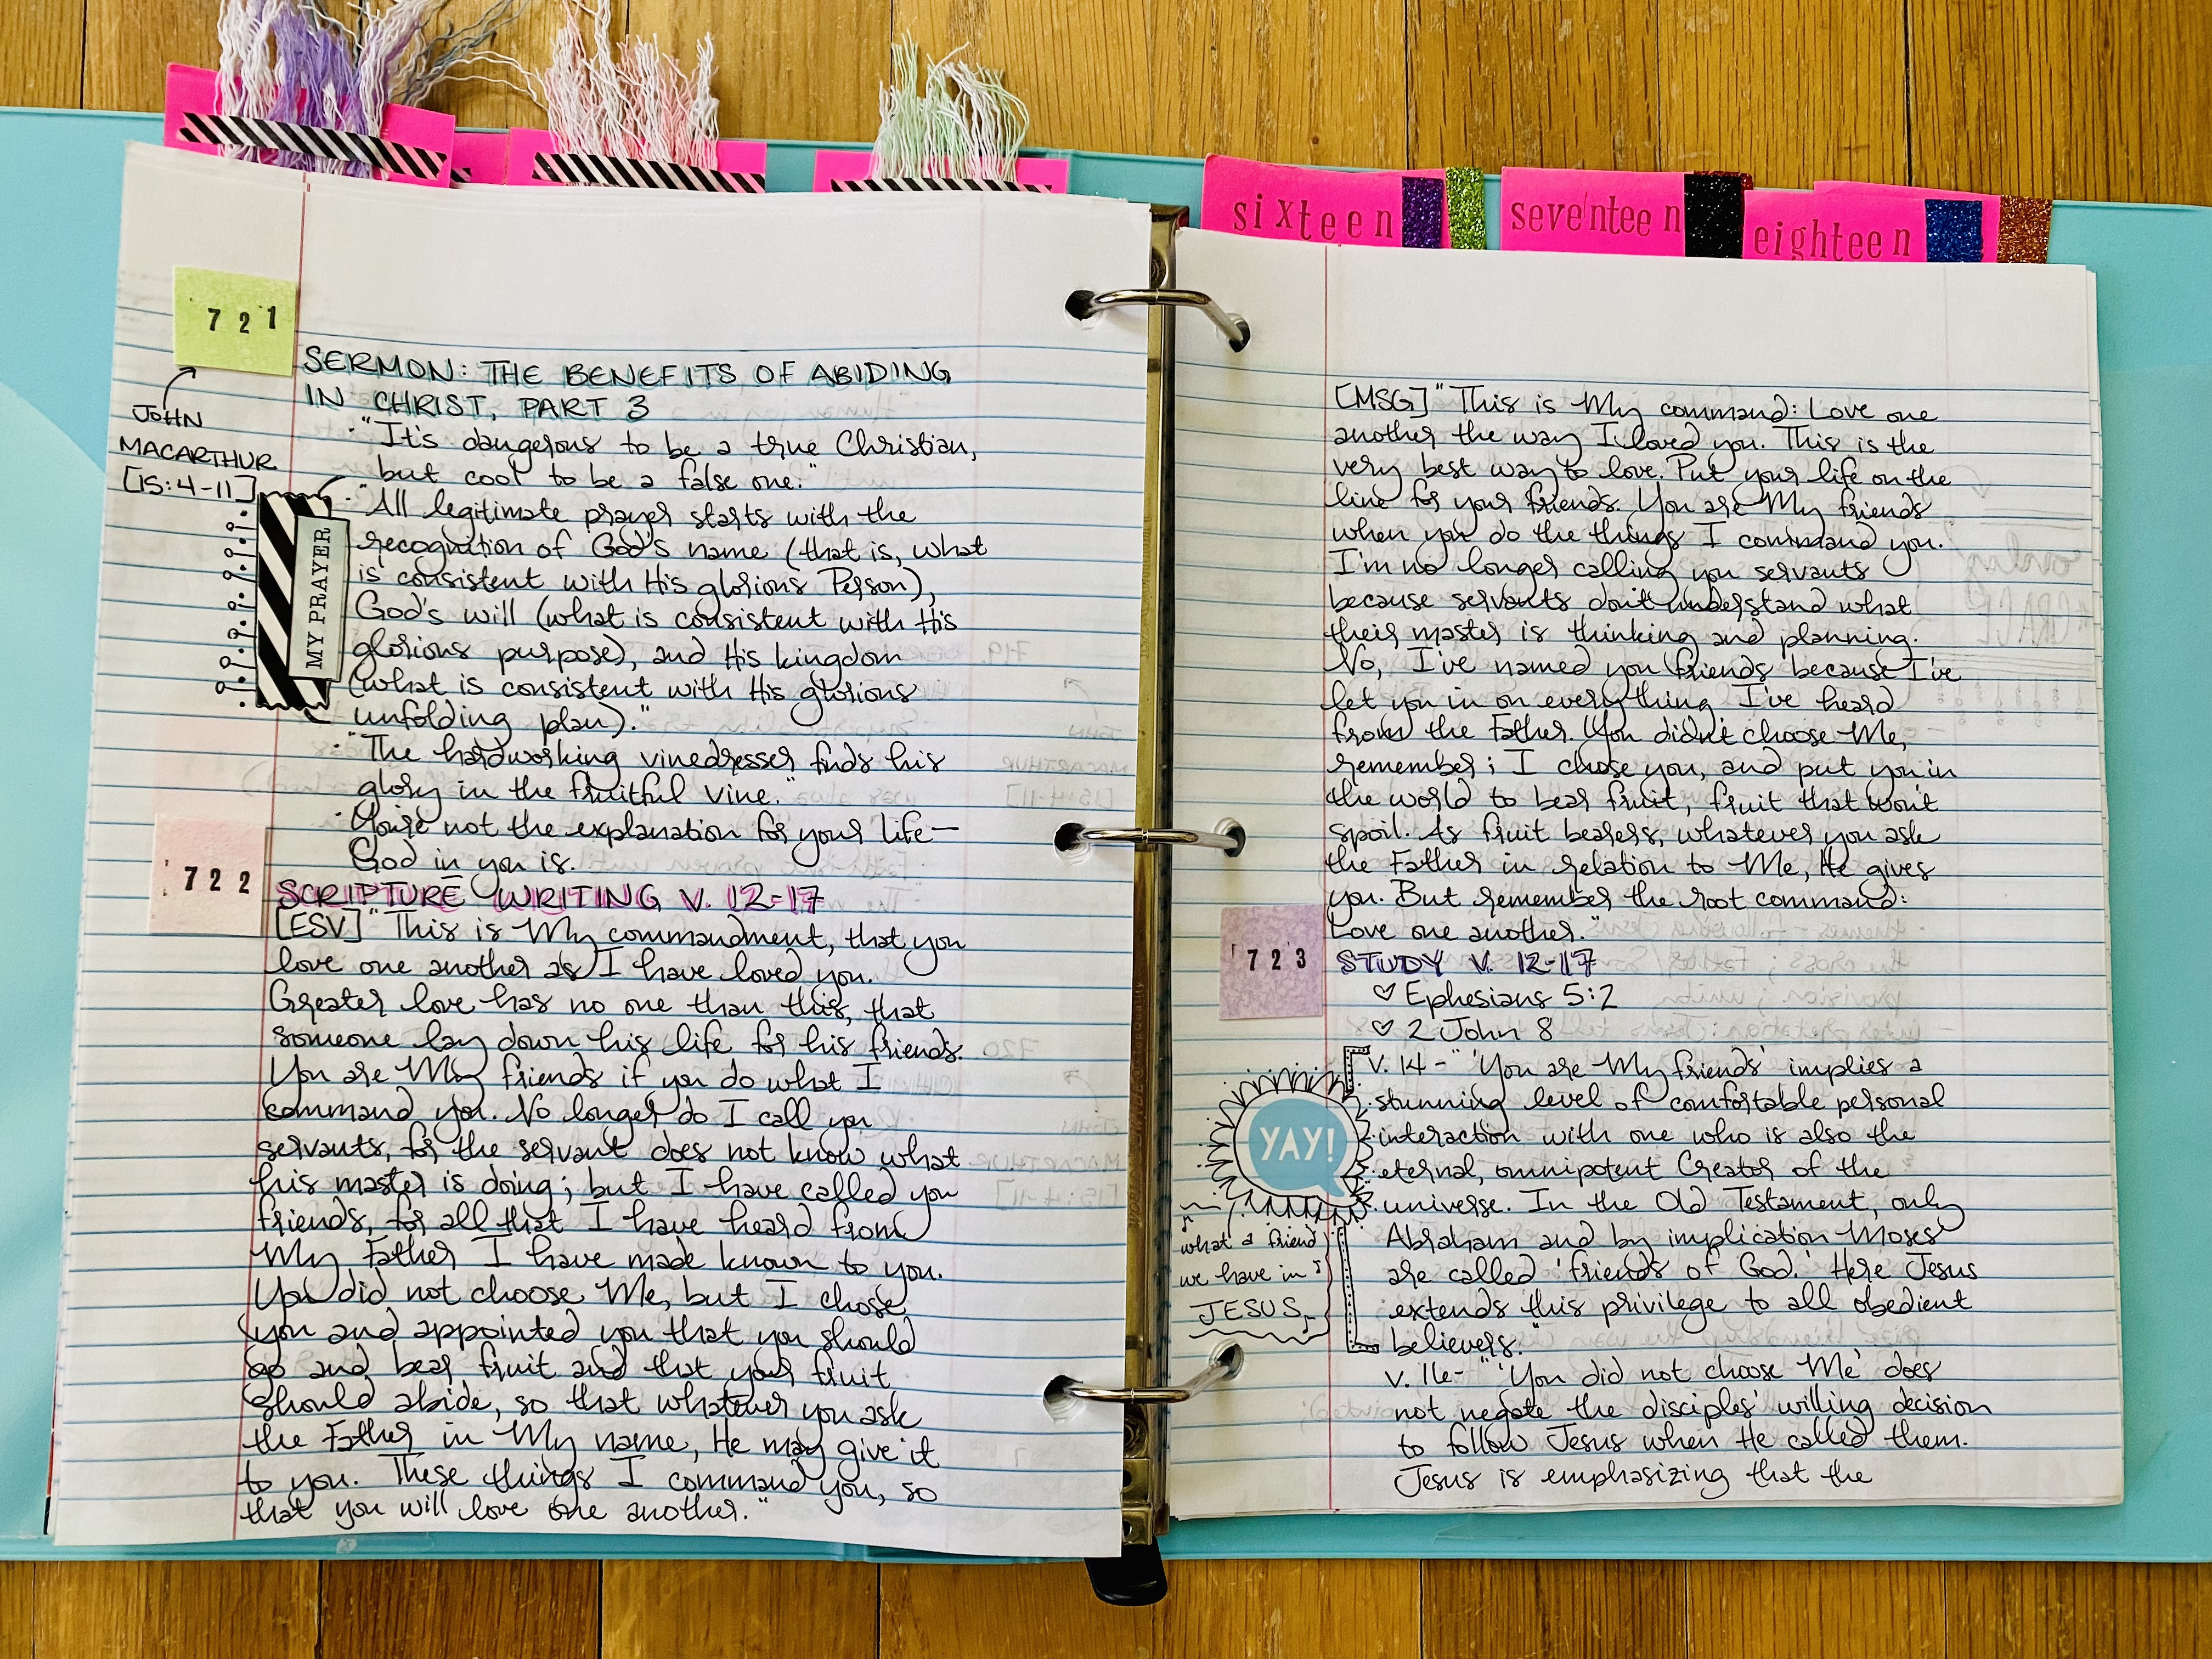 sixteen
seventeen
eighteen
721
JOHN
MACARTHUR
[15:4-11]
MY PRAYER
SERMON: THE BENEFITS OF ABIDING
IN CHRIST, PART 3
· "It's dangerous to be a true Christian,
but cool to be a false one."
· "All legitimate prayer starts with the
recognition of God's name (that is, what
is consistent with His glorious Person),
God's will (what is consistent with His
glorious purpose), and His kingdom
(what is consistent with His glorious
unfolding plan)."
· "The hardworking vinedresser finds his
glory in the fruitful vine."
· You're not the explanation for your life—
God in you is.
722
SCRIPTURE WRITING V. 12-17
[ESV] "This is My commandment, that you
love one another as I have loved you.
Greater love has no one than this, that
someone lay down his life for his friends.
You are My friends if you do what I
command you. No longer do I call you
servants, for the servant does not know what
his master is doing; but I have called you
friends, for all that I have heard from
My Father I have made known to you.
You did not choose Me, but I chose
you and appointed you that you should
go and bear fruit and that your fruit
should abide, so that whatever you ask
the Father in My name, He may give it
to you. These things I command you, so
that you will love one another."
[MSG] "This is My command: Love one
another the way I loved you. This is the
very best way to love. Put your life on the
line for your friends. You are My friends
when you do the things I command you.
I'm no longer calling you servants
because servants don't understand what
their master is thinking and planning.
No, I've named you friends because I've
let you in on everything I've heard
from the Father. You didn't choose Me,
remember; I chose you, and put you in
the world to bear fruit, fruit that won't
spoil. As fruit bearers, whatever you ask
the Father in relation to Me, He gives
you. But remember the root command:
Love one another."
723
STUDY V. 12-17
♡ Ephesians 5:2
♡ 2 John 8
v. 14 - "'You are My friends' implies a
stunning level of comfortable personal
interaction with one who is also the
eternal, omnipotent Creator of the
universe. In the Old Testament, only
Abraham and by implication Moses
are called 'friends of God.' Here Jesus
extends this privilege to all obedient
believers."
YAY!
what a friend
we have in
JESUS
v. 16 - "'You did not choose Me' does
not negate the disciples' willing decision
to follow Jesus when He called them.
Jesus is emphasizing that the